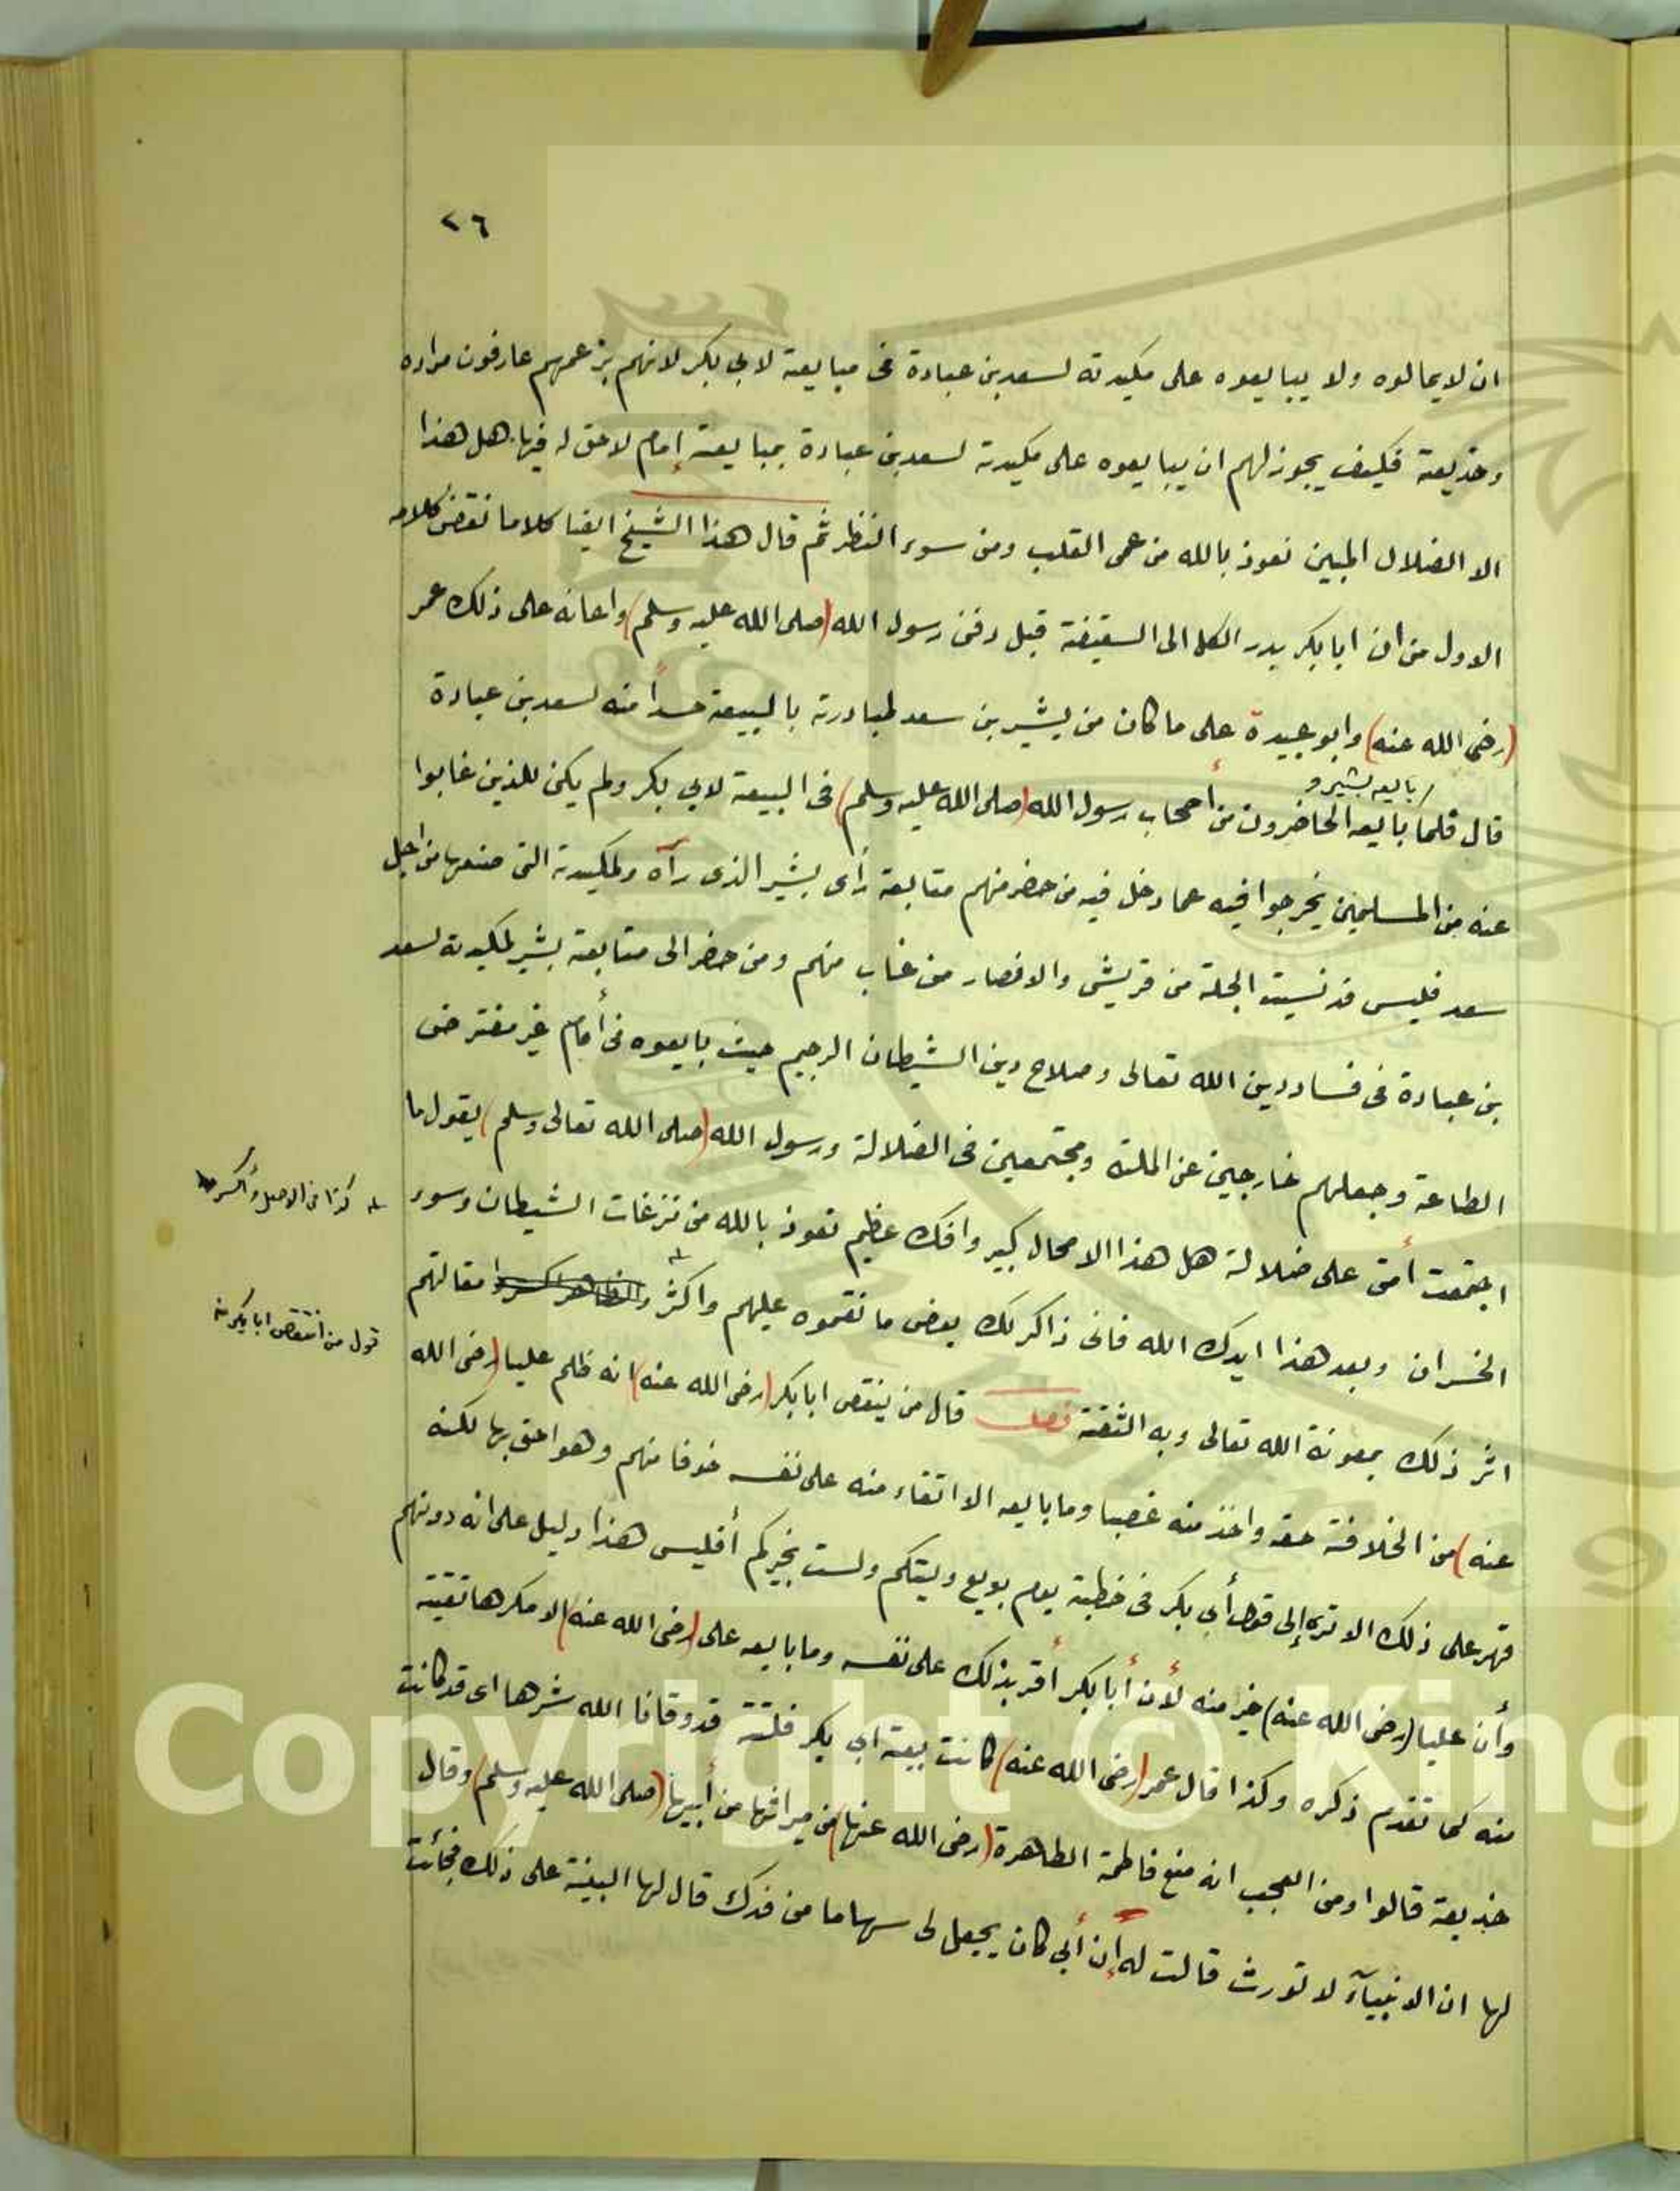 ٢٦
ان لا يمالوه ولا يبايعوه على مكيدته لسعد بن عبادة فى مبايعة لابى بكر لانهم بزعمهم عارفون مراده
وخديعة فكيف يجوز لهم ان يبايعوه على مكيدة لسعد بن عبادة بمبايعة إمام لاحق له فيها هل هذا
الا الضلال المبين نعوذ بالله من عمى القلب ومن سوء النظر ثم قال هذا الشيخ ايضا كلاما نقض كلامه
الاول من ان ابا بكر بدر الكل الى السقيفة قبل دفن رسول الله (صلى الله عليه وسلم) واعانه على ذلك عمر
(رضى الله عنه) وابو عبيدة على ما كان من بشير بن سعد لمبادرته بالبيعة حسدًا منه لسعد بن عبادة
بايعه بشير و
قال فلما بايعه الحاضرون من أصحاب رسول الله (صلى الله عليه وسلم) فى البيعة لابى بكر ولم يكن للذين غابوا
عنه من المسلمين يخرجوا فيه عما دخل فيه من حضر منهم متابعة رأى بشير الذى رآه ولمكيدة التى صنعها من اجل
سعد فليس قد نسيت الجلة من قريش والانصار من غاب منهم ومن حضر الى متابعة بشير لمكيدته لسعد
بن عبادة فى فساد دين الله تعالى وصلاح دين الشيطان الرجيم حيث بايعوه فى أمام غير مفترض
الطاعة وجعلهم خارجين عن الملة ومجتمعين فى الضلالة ورسول الله (صلى الله تعالى وسلم) يقول ما
اجتمعت أمتى على ضلالة هل هذا الا محال كبير وافك عظيم نعوذ بالله من نزغات الشيطان وسوء
الخسران وبعد هذا ايدك الله فانى ذاكر لك بعض ما نقموه عليهم واكثر مقالتهم
اثر ذلك بمعونة الله تعالى وبه الثقة فصل قال من ينقص ابا بكر (رضى الله عنه) انه ظلم عليا (رضى الله
عنه) من الخلافة حقه واخذ منه غصبا وما بايعه الا اتقاء منه على نفسه خوفا منهم وهو احق بها لكنه
قهر على ذلك الا تره إلى قول أبى بكر فى خطبة يوم بويع وليتكم ولست بخيركم أفليس هذا دليل على انه دونهم
وأن عليا (رضى الله عنه) خير منه لأن أبا بكر أقر بذلك على نفسه وما بايعه على (رضى الله عنه) الا مكرها تقية
منه كما تقدم ذكره وكذا قال عمر (رضى الله عنه) كانت بيعة ابى بكر فلتة قد وقانا الله شرها اى قد كانت
خديعة قالوا ومن العجب انه منع فاطمة الطاهرة (رضى الله عنها) من ميراثها من أبيها (صلى الله عليه وسلم) وقال
لها ان الانبيآء لا تورث قالت له إن أبى كان يجعل لى سهاما من فدك قال لها البينة على ذلك فجائت
كذا فى الاصل
قول من انتقص ابا بكر